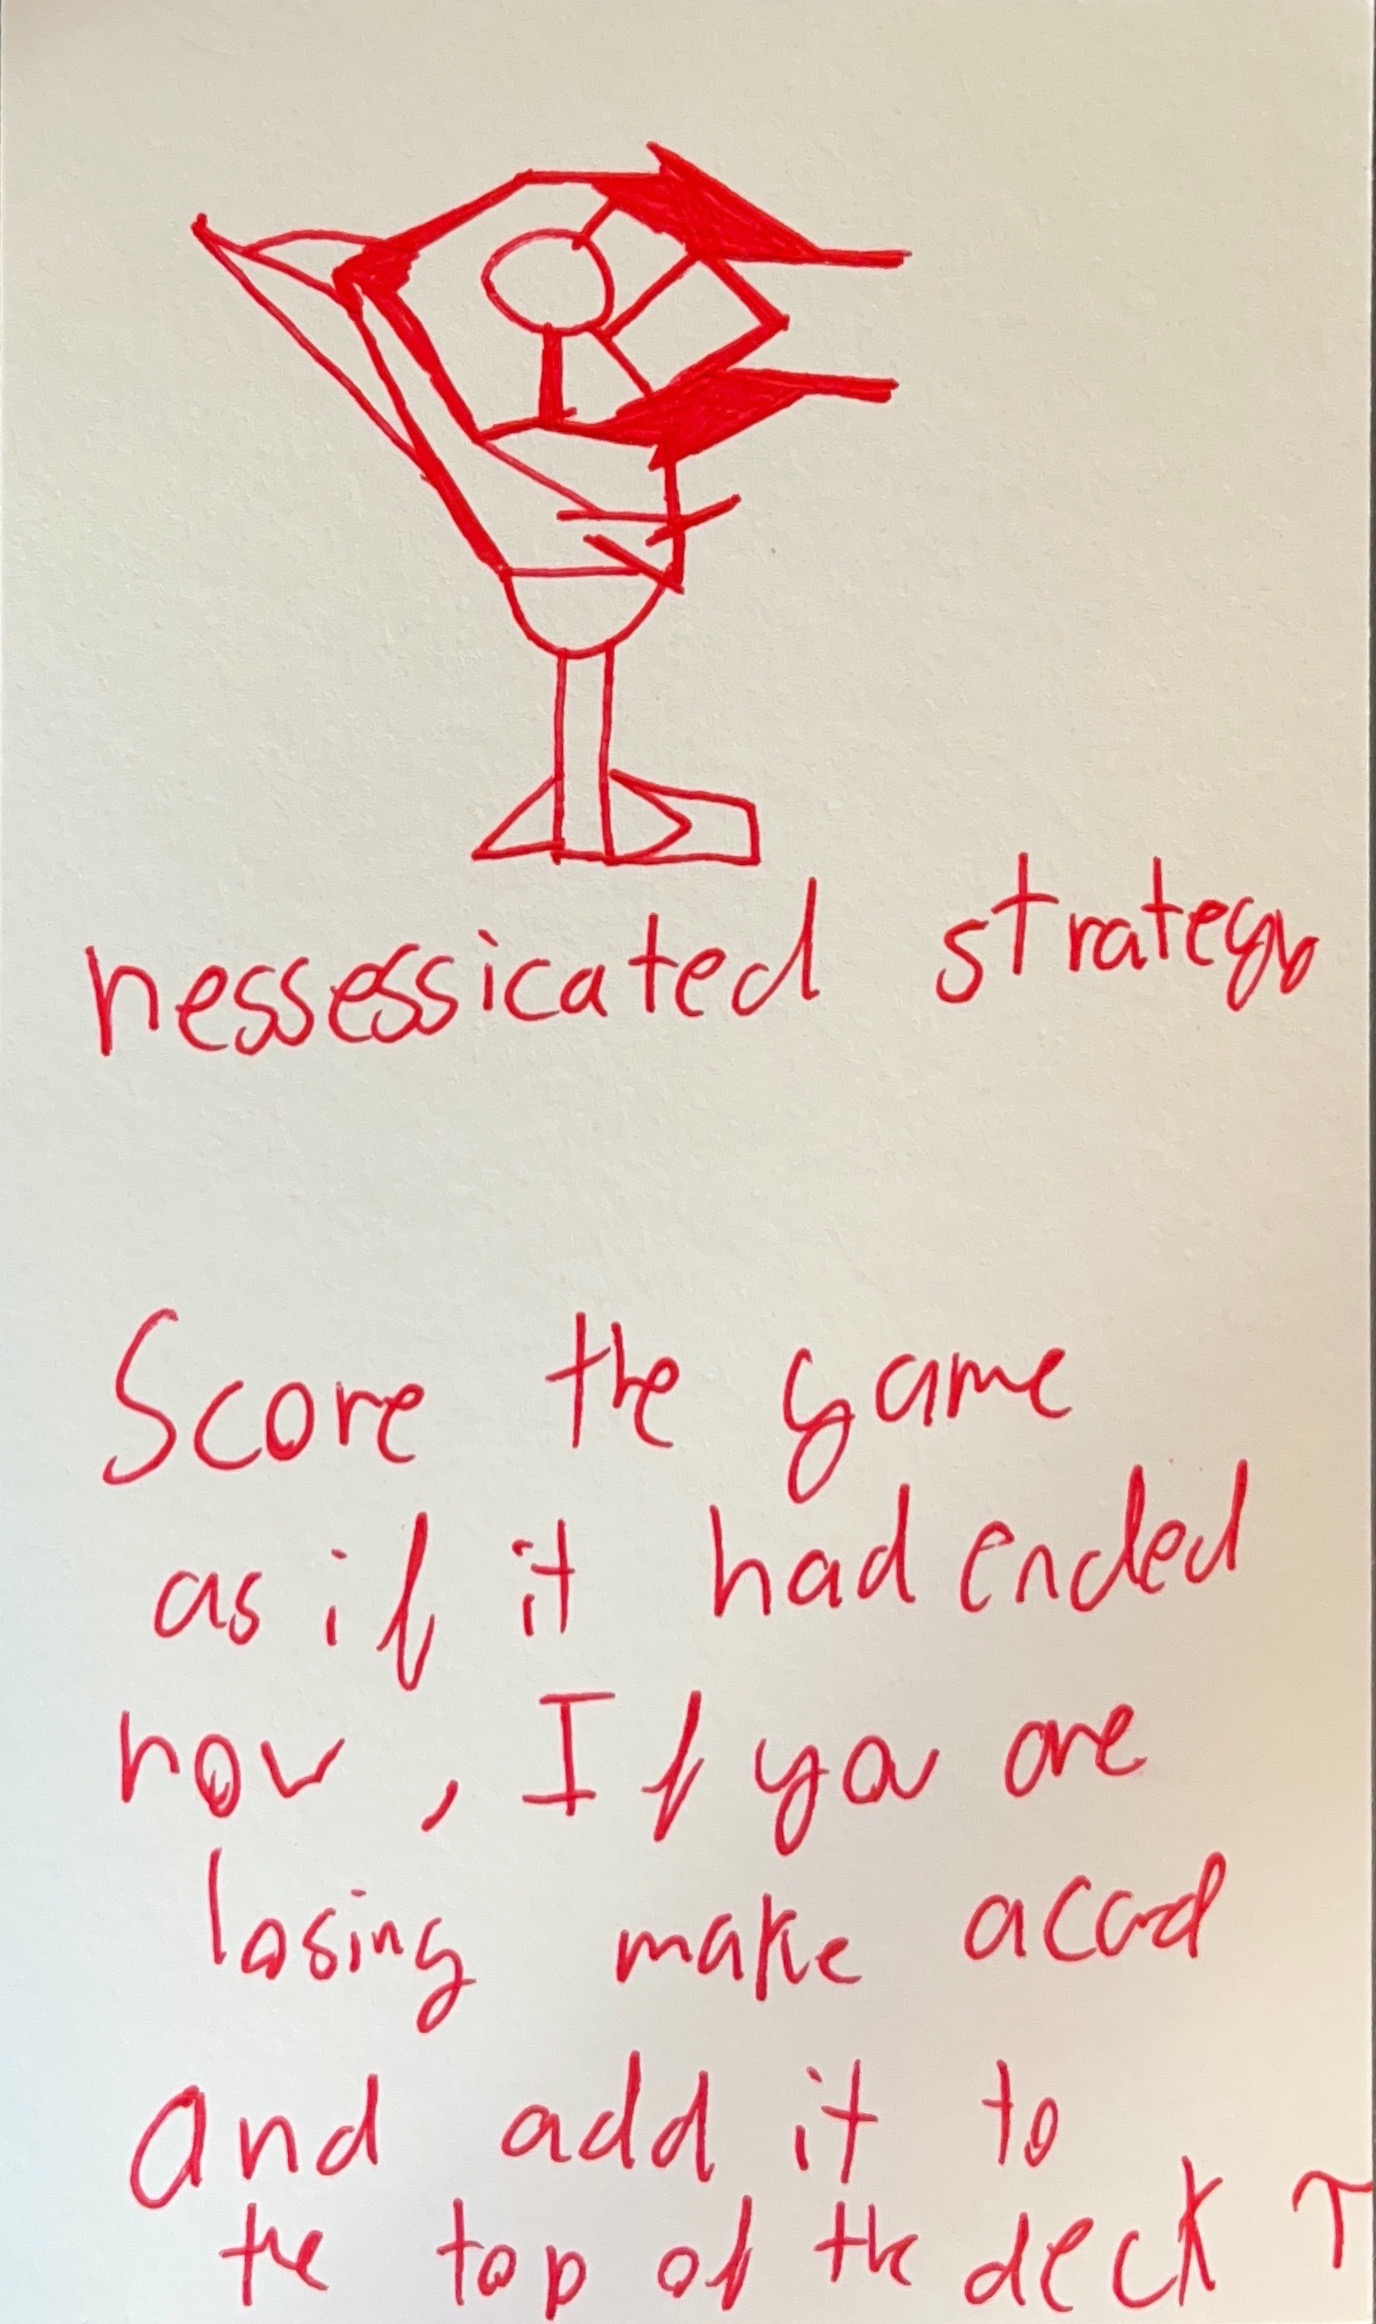 nessessicated strategy
Score the game
as if it had ended
now, If you are
losing make a card
And add it to
the top of the deck ↑